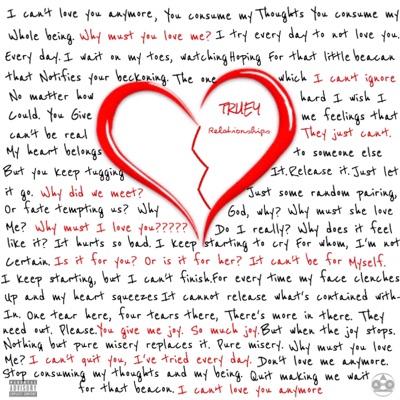 I can't love you anymore, You consume my Thoughts You consume my
Whole being. Why must you love me? I try every day to not love you.
Every day. I wait on my toes, watching Hoping For that little beacan
that Notifies your beckoning. The one which I can't ignore
No matter how hard I wish I
Could. You Give me feelings that
can't be real They just cant.
My heart belongs to someone else
But you keep tugging It. Release it. Just let
it go. Why did we meet? Just some random pairing,
Or fate tempting us? Why God, why? Why must she love
Me? Why must I love you????? Do I really? Why does it feel
like it? It hurts so bad. I keep starting to cry For whom, I'm not
Certain. Is it for you? Or is it for her? It can't be for Myself.
I keep starting, but I can't finish. For every time my face clenches
Up and my heart squeezes It cannot release what's contained with-
In. One tear here, four tears there, There's more in there. They
need out. Please. You give me joy. So much joy. But when the joy stops.
Nothing but pure misery replaces it. Pure misery. Why must you love
Me? I can't quit you, I've tried every day. Don't love me anymore.
Stop consuming my thoughts and my being. Quit making me wait
for that beacon. I can't love you anymore
TRUEY
Relationships
PARENTAL
ADVISORY
EXPLICIT CONTENT